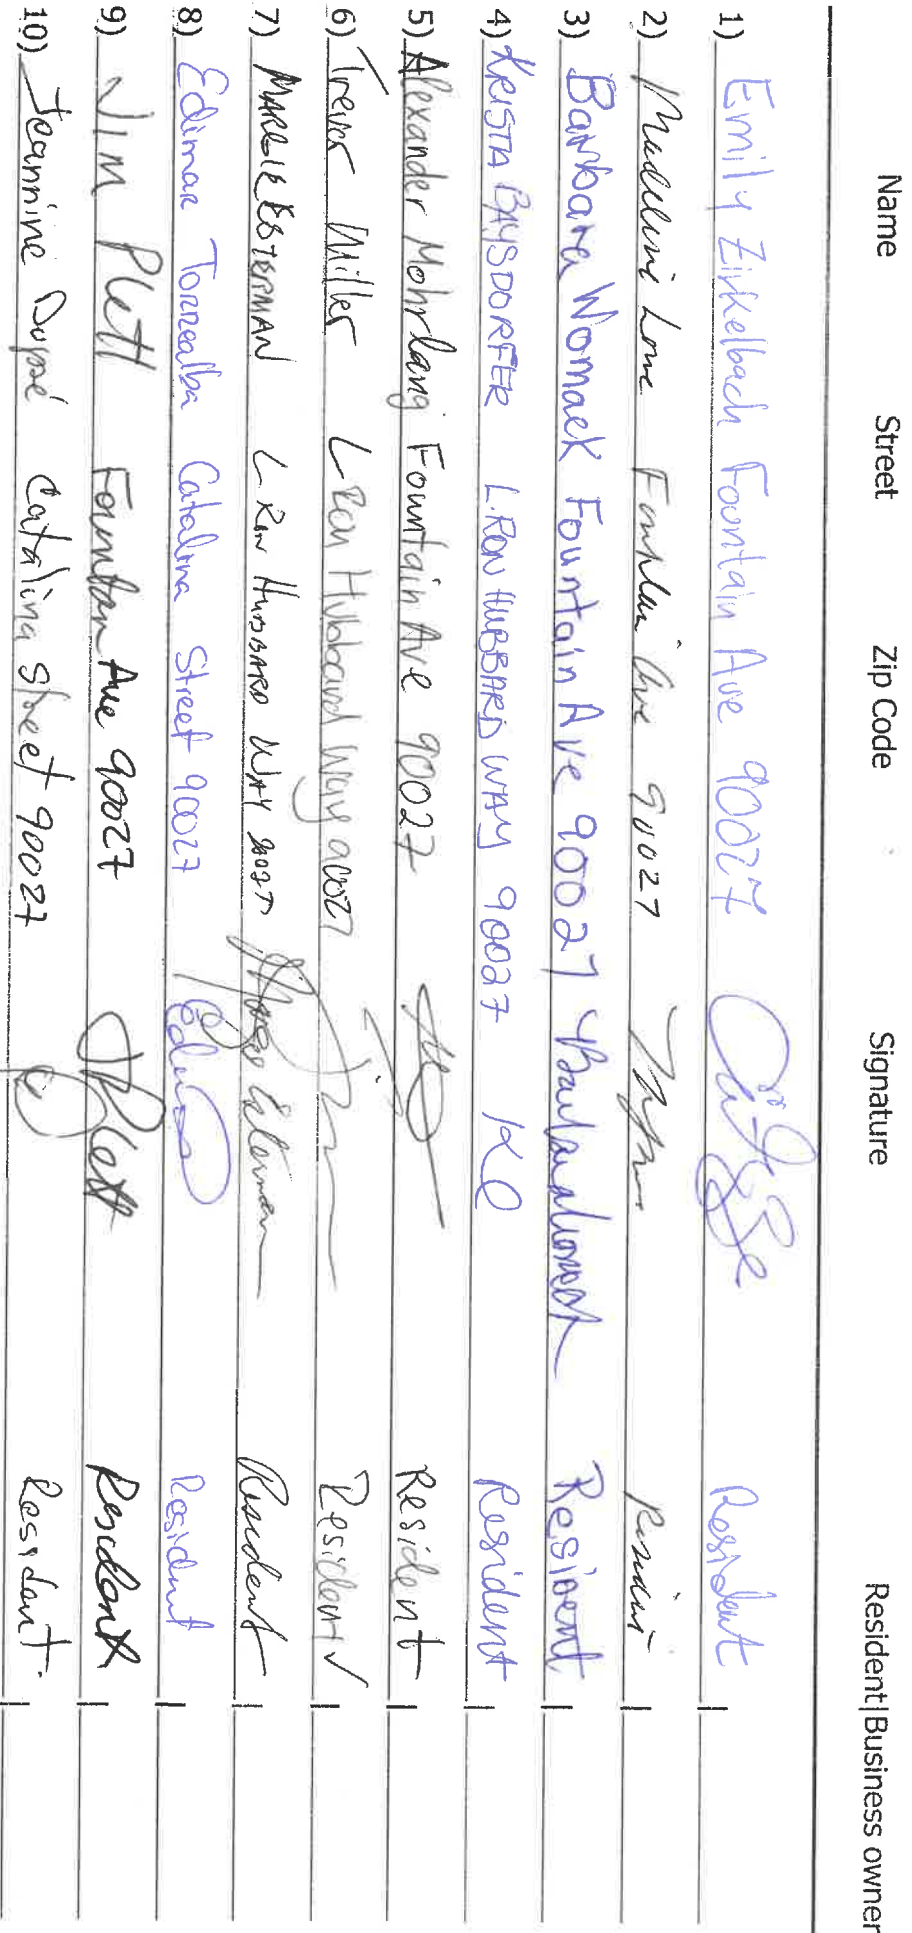 Name Street Zip Code Signature Resident|Business owner
1) Emily Zirkelbach Fountain Ave 90027 Resident
2) Madeline Lowe Fountain Ave 90027 Resident
3) Barbara Womack Fountain Ave 90027 Barbara Womack Resident
4) KRISTA BAYSDORFER L. RON HUBBARD WAY 90027 KB Resident
5) Alexander Mohrlang Fountain Ave 90027 Resident
6) Trevor Miller L Ron Hubbard Way 90027 Resident ✓
7) MARGIE ESTERMAN L RON HUBBARD WAY 90027 Resident
8) Edimar Torrealba Catalina Street 90027 Resident
9) Jim Plett Fountain Ave 90027 JPlett Resident
10) Jeannine Dupé Catalina Street 90027 Resident.